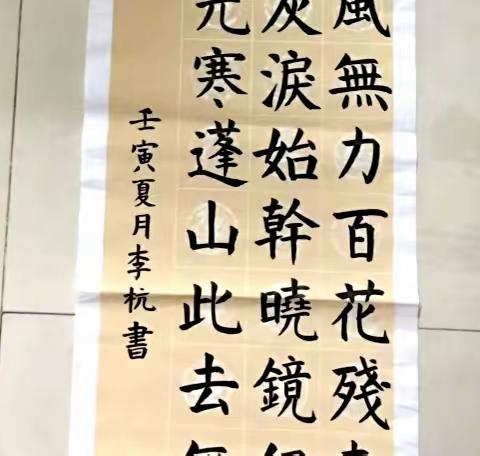 風無力百花殘
灰淚始幹曉鏡
光寒蓬山此去無
壬寅夏月李杭書